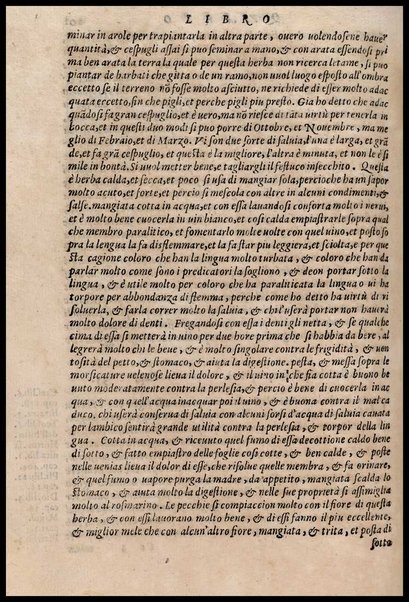 LIBRO
minar in arole per trapiantarla in altra parte, ouero uolendosene hauer
quantità, & cespugli assai si puo seminar a mano, & con arata essendosi pri
ma ben arata la terra la quale per questa herba non ricerca letame, si puo
piantar de barbati che gitta o de un ramo, non uuol luogo esposto all'ombra
eccetto se il terreno nõ fosse molto asciutto, ne richiede di esser molto adac
quata eccetto, sin che pigli, et perche pigli piu presto. Gia ho detto che adac
quãdosi fa gran cespuglio, et è uero, ma nõ riesce di tata uirtù per tenerla in
bocca, et in questi duo modi si puo porre di Ottobre, et Nouembre, ma me
glio di Febraio, et di Marzo. Vi son due sorte di saluia, l'una è larga, et grã
de, et fa grã cespuglio, et questa è la migliore, l'altra è minuta, et non le è si
mile in bontà. Si uuol metter bene, e tagliargli il festuco insecchito. Questa
è herba calda, et secca, et poco si usa di mangiar sola, percioche ha un sapor
molto acuto, et forte, et perciò si mescola con altre in alcuni condimenti, &
salse. mangiata cotta in acqua, et con essa lauandosi conforta molto i nerui,
et è molto bene cuocerla in uin bianco, et cosi calda empiastrarle sopra qual
che membro paralitico, et fomentarlo molte uolte con quel uino, et posto so
pra la lengua la fa disflemmare, et la fa star piu leggiera, et sciolta, e per que
sta cagione coloro che han la lingua molto turbata, & coloro che han da
parlar molto come sono i predicatori la sogliono, & deon portar sotto la
lingua, & è utile molto per coloro che ha paraliticata la lingua o ui ha
torpore per abbondanza di flemma, perche come ho detto ha uirtù di ri
soluerla, & farla correr molto la saluia, & chi l'userà portar non haurà
molto dolore di denti. Fregandosi con essa i denti gli netta, & se qualche
cima di essa si metterà in uino per due hore prima che si habbia da bere, al
legrerà molto chi le bene, & è molto singolare contra le frigidità, & uen
tosità del petto, & stomaco, & aiuta la digestione. pesta, & messa sopra le
morsicature uelenose lieua il dolore, & il uino in che sia cotta è buono be
uuto moderatamente contra la perlesia, & percio è bene di cuocerla in ac
qua, & con quell'acqua inacquar poi il uino, & è buona contra il mal ca
duco. chi userà conserua di saluia con alcuni sorsi d'acqua di saluia cauata
per lambico sentirà grande utilità contra la perlesia, & torpor della lin
gua. Cotta in acqua, & riceuuto quel fumo di essa decottione caldo bene
di sotto, & fatto empiastro delle foglie cosi cotte, & ben calde, & poste
nelle uentas lieua il dolor di esse, che risolue quelle membra, & fa orinare,
& quel fumo o uapore purga la madre, da appetito, mangiata scalda lo
stomaco, & aiuta molto la digestione, & nelle sue proprietà si assimiglia
molto al rosmarino. Le pecchie si compiaccion molto con il fiore di questa
herba, & con essi lauorano molto bene, & di essi fanno il piu eccellente,
& miglior mele che con alcun'altro fiore, mangiata, & trita, et posta di
sotto